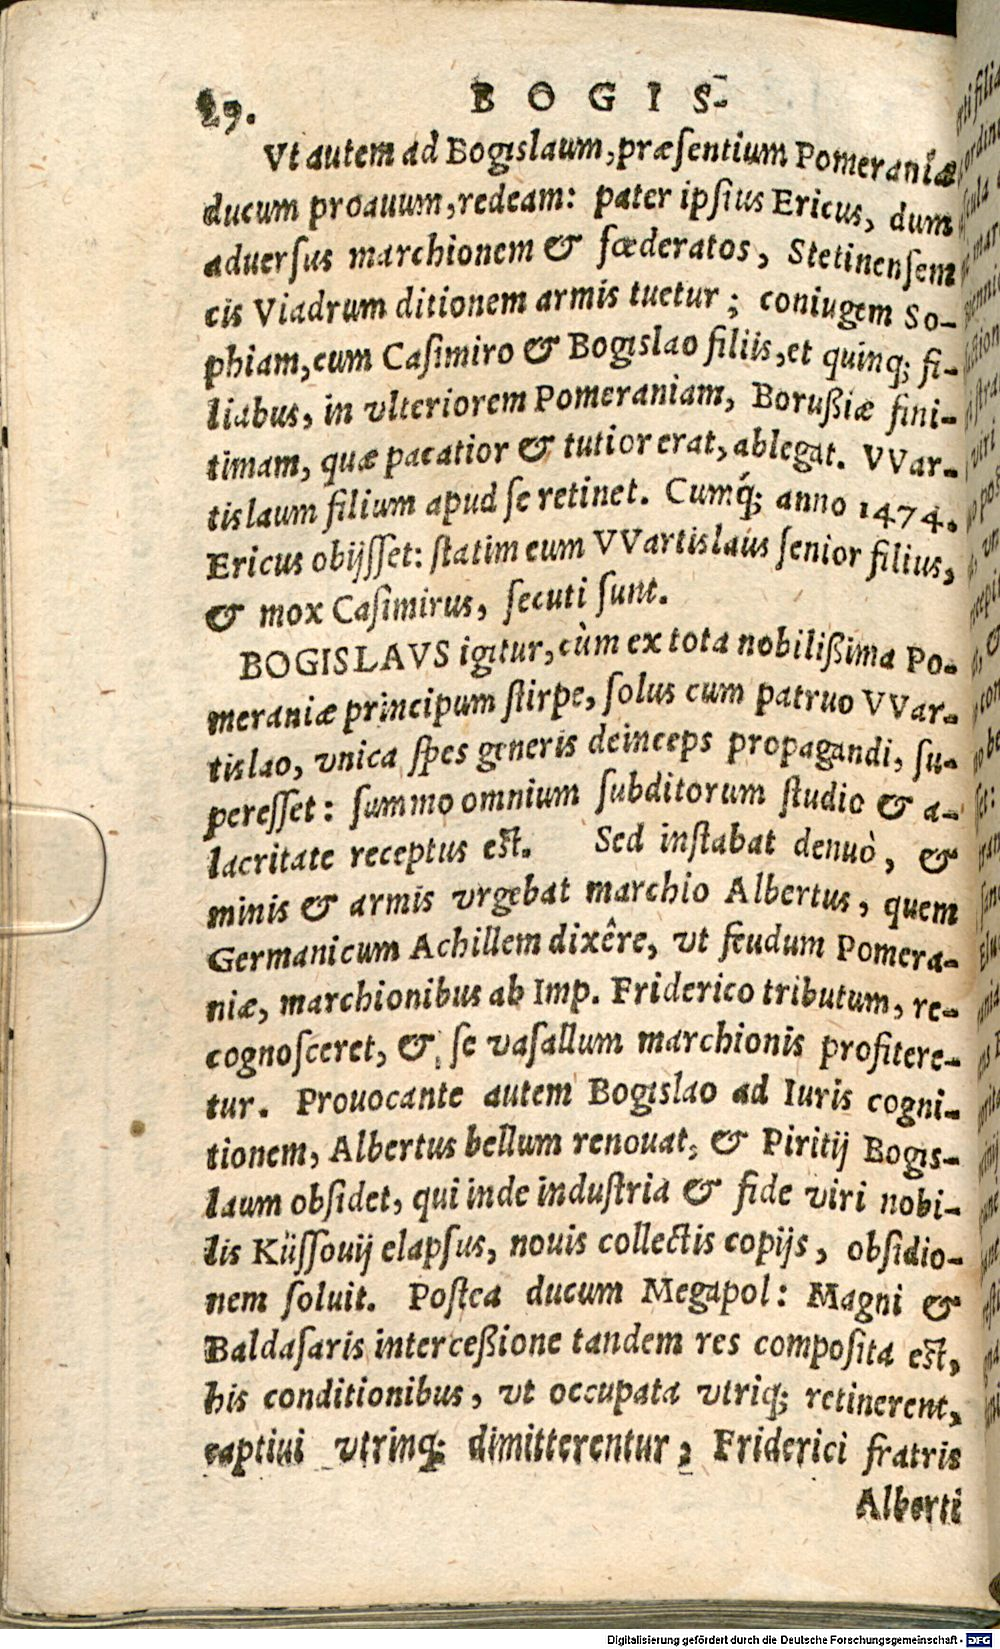 29. BOGIS-
Vt autem ad Bogislaum, præſentium Pomeraniæ
ducum proauum, redeam: pater ipſius Ericus, dum
aduerſus marchionem & fœderatos, Stetinenſem
cis Viadrum ditionem armis tuetur; coniugem So-
phiam, cum Caſimiro & Bogislao filiis, et quinq; fi-
liabus, in vlteriorem Pomeraniam, Borußiæ fini-
timam, quæ pacatior & tutior erat, ablegat. VVar-
tislaum filium apud ſe retinet. Cumq́; anno 1474.
Ericus obijſſet: ſtatim eum VVartislaus ſenior filius,
& mox Caſimirus, ſecuti ſunt.
BOGISLAVS igitur, cùm ex tota nobilißima Po-
meraniæ principum ſtirpe, ſolus cum patruo VVar-
tislao, vnica ſpes generis deinceps propagandi, ſu-
pereſſet: ſummo omnium ſubditorum ſtudio & a-
lacritate receptus eſt. Sed inſtabat denuò, &
minis & armis vrgebat marchio Albertus, quem
Germanicum Achillem dixêre, vt feudum Pomera-
niæ, marchionibus ab Imp. Friderico tributum, re-
cognoſceret, & ſe vaſallum marchionis profitere-
tur. Prouocante autem Bogislao ad Iuris cogni-
tionem, Albertus bellum renouat, & Piritij Bogis-
laum obſidet, qui inde induſtria & fide viri nobi-
lis Küſſouij elapſus, nouis collectis copijs, obſidio-
nem ſoluit. Poſtea ducum Megapol: Magni &
Baldaſaris interceßione tandem res compoſita eſt,
his conditionibus, vt occupata vtriq; retinerent,
captiui vtrinq; dimitterentur, Friderici fratris
Alberti
Digitalisierung gefördert durch die Deutsche Forschungsgemeinschaft - DFG